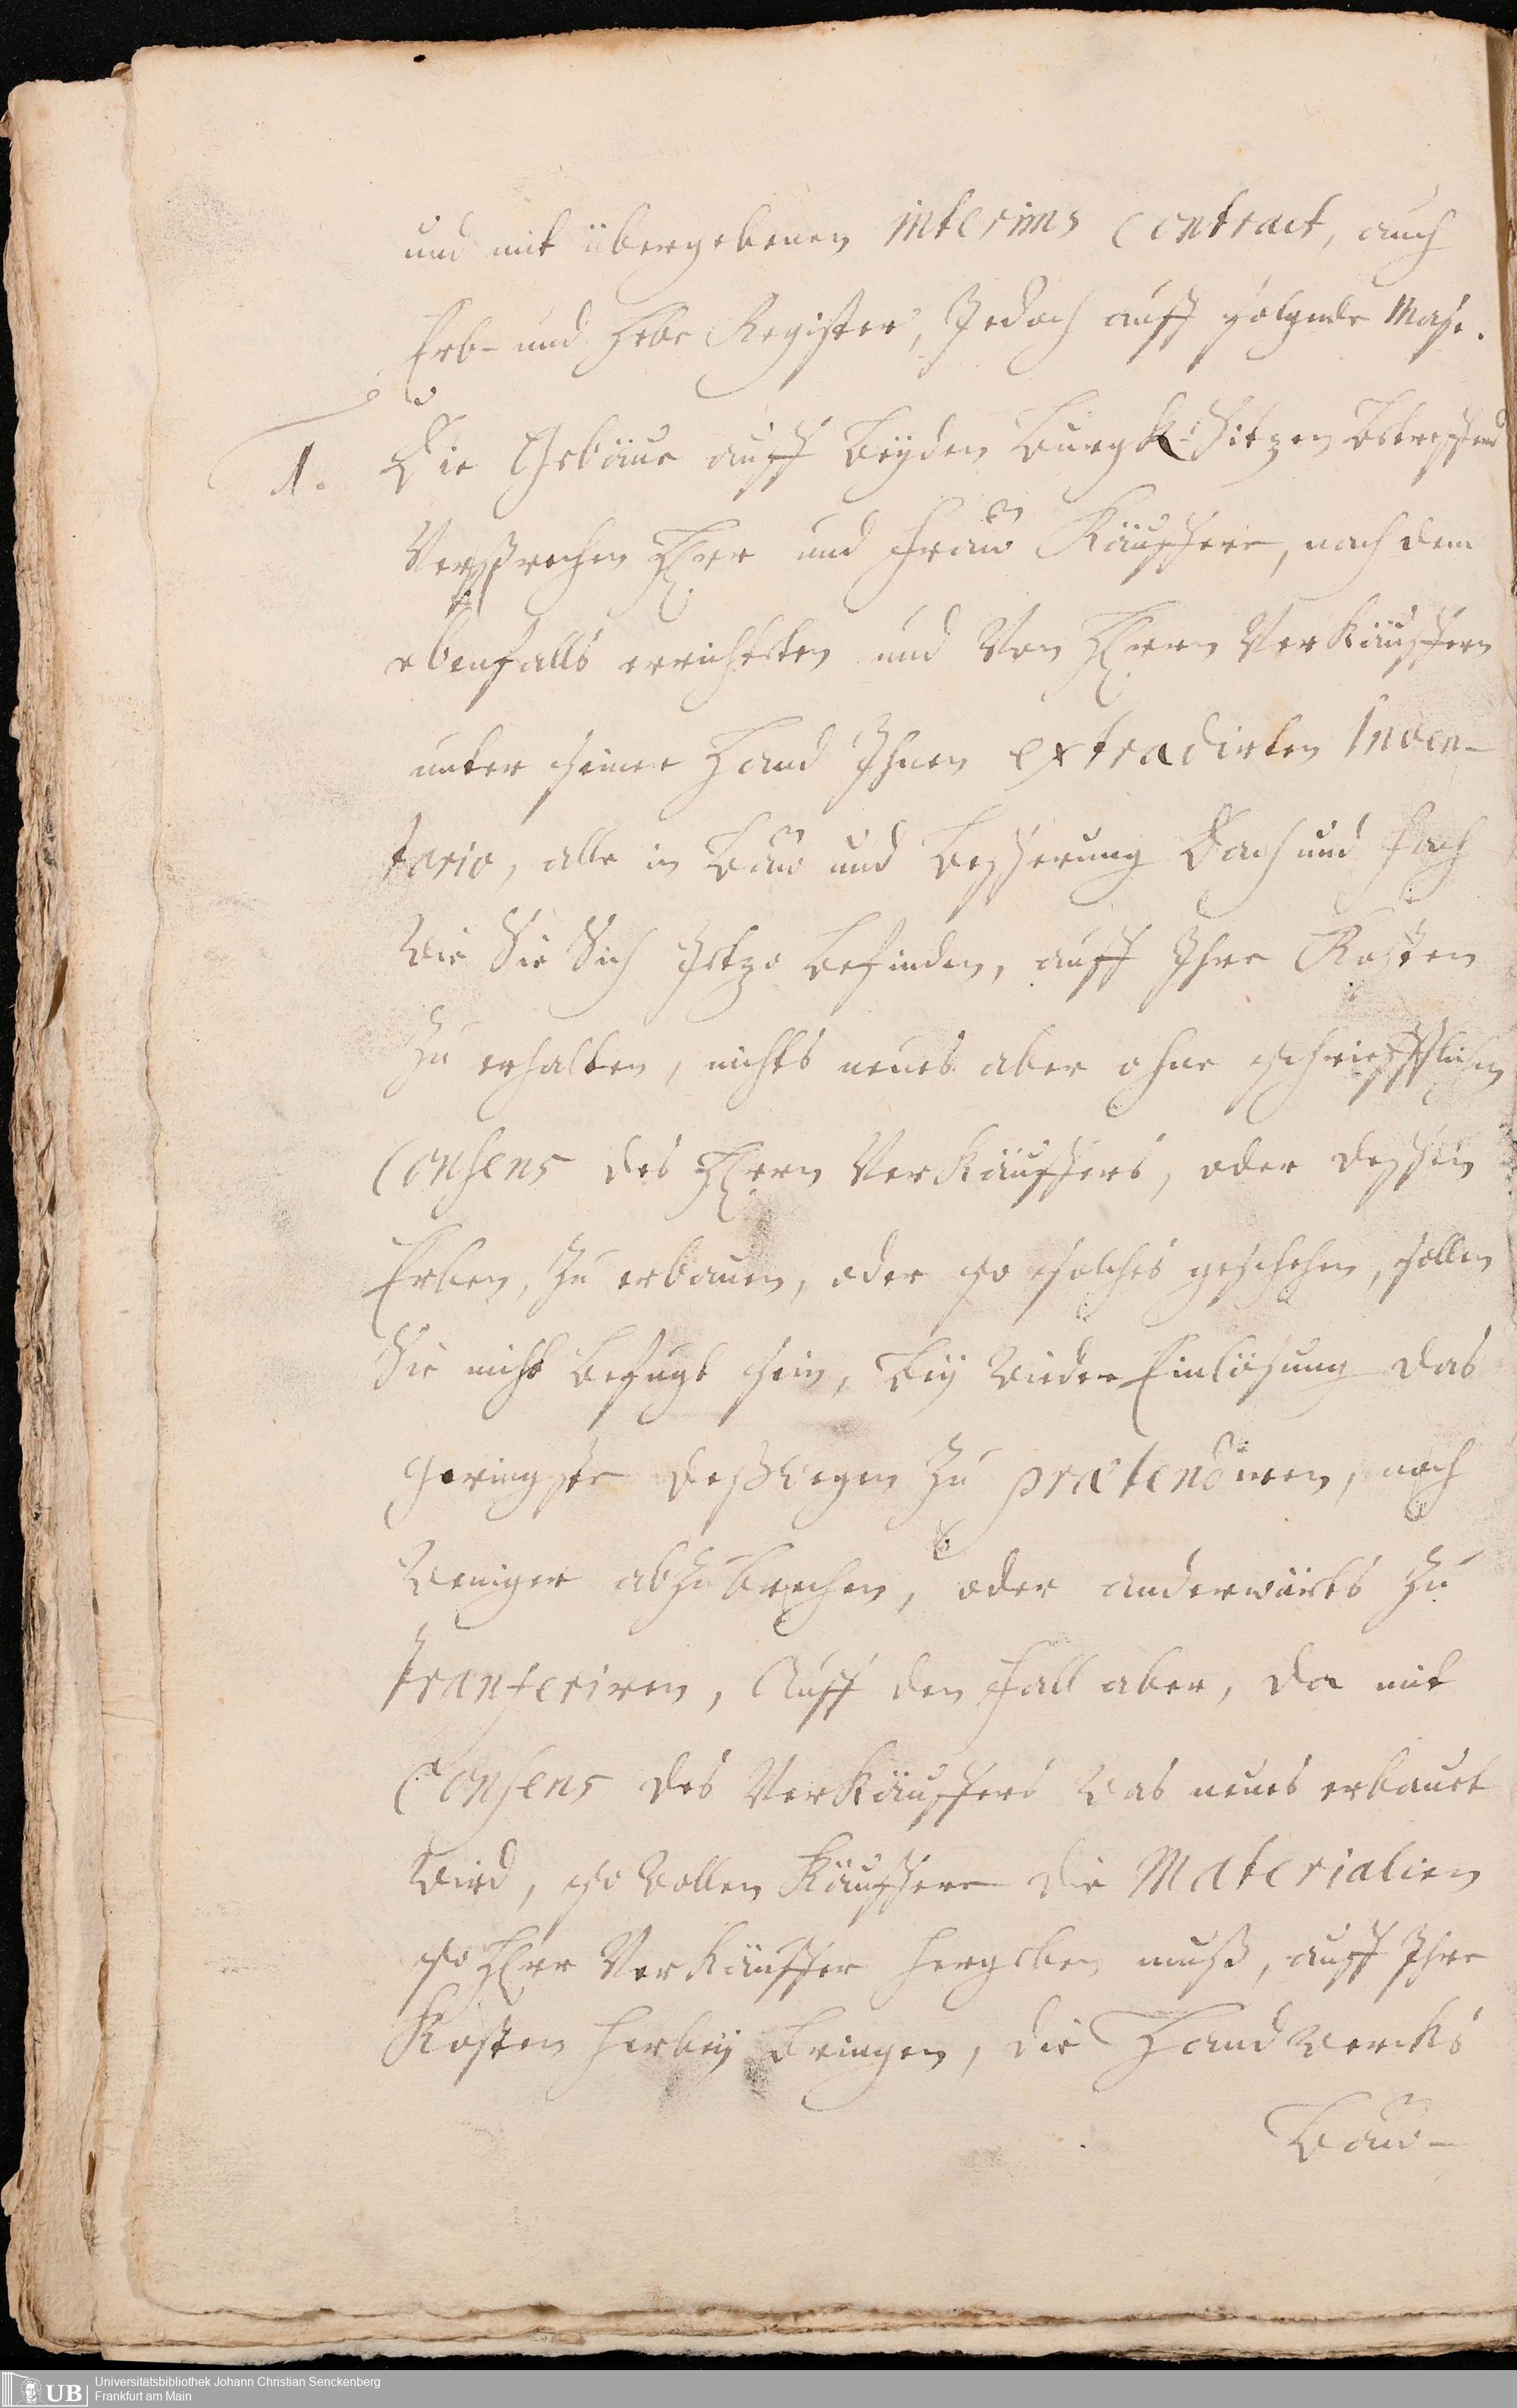 und mit übergebenen interims Contract, auch
Erb- und Hebe Register, Jedoch auff folgende Mase.
1. Die Gebäue auff Beyden Burgk-Sitzen Betreffend
Versprechen Herr und Frau Käuffere, nach dem
ebenfalls errichteten und Von Herrn Verkäuffern
unter seiner Hand Ihnen extradirten Inven-
tario, alle in Bau und Besserung Dach und Fach
Wie Sie Sich Jetzo Befinden, auff Ihre Kosten
Zu erhalten, nichts neues aber ohne schriefftlichen
Consens des Herrn Verkäuffers, oder dessen
Erben, Zu erbauen, oder so solches geschehen, sollen
Sie nicht Befugt sein, Bey Wieder Einlösung das
geringste deßwegen Zu prætendiren, noch
Weniger abzubrechen, oder anderwärts Zu
tranferiren, Auff den Fall aber, da mit
Consens des Verkäuffers Was neues erbauet
Wird, so Wollen Käuffere die Materialien
so Herr Verkäuffer hergeben muß, auff Ihre
Kosten herbey Bringen, die HandWercks
Bau-
Universitätsbibliothek Johann Christian Senckenberg
Frankfurt am Main
UB